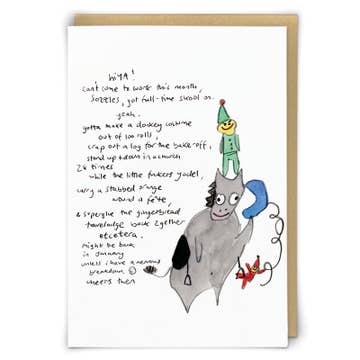 hiYA!
can't come to work this month,
sozzles, got full-time skool on.
yeah.
gotta make a donkey costume
out of loo rolls,
crap out a log for the bake-off,
stand up + down in a church
28 times
while the little fuckers yodel,
carry a stabbed orange
around a fête,
& superglue the gingerbread
travelodge back 2gether
etcetera.
might be back
in January
unless i have a nervous
breakdown
cheers then